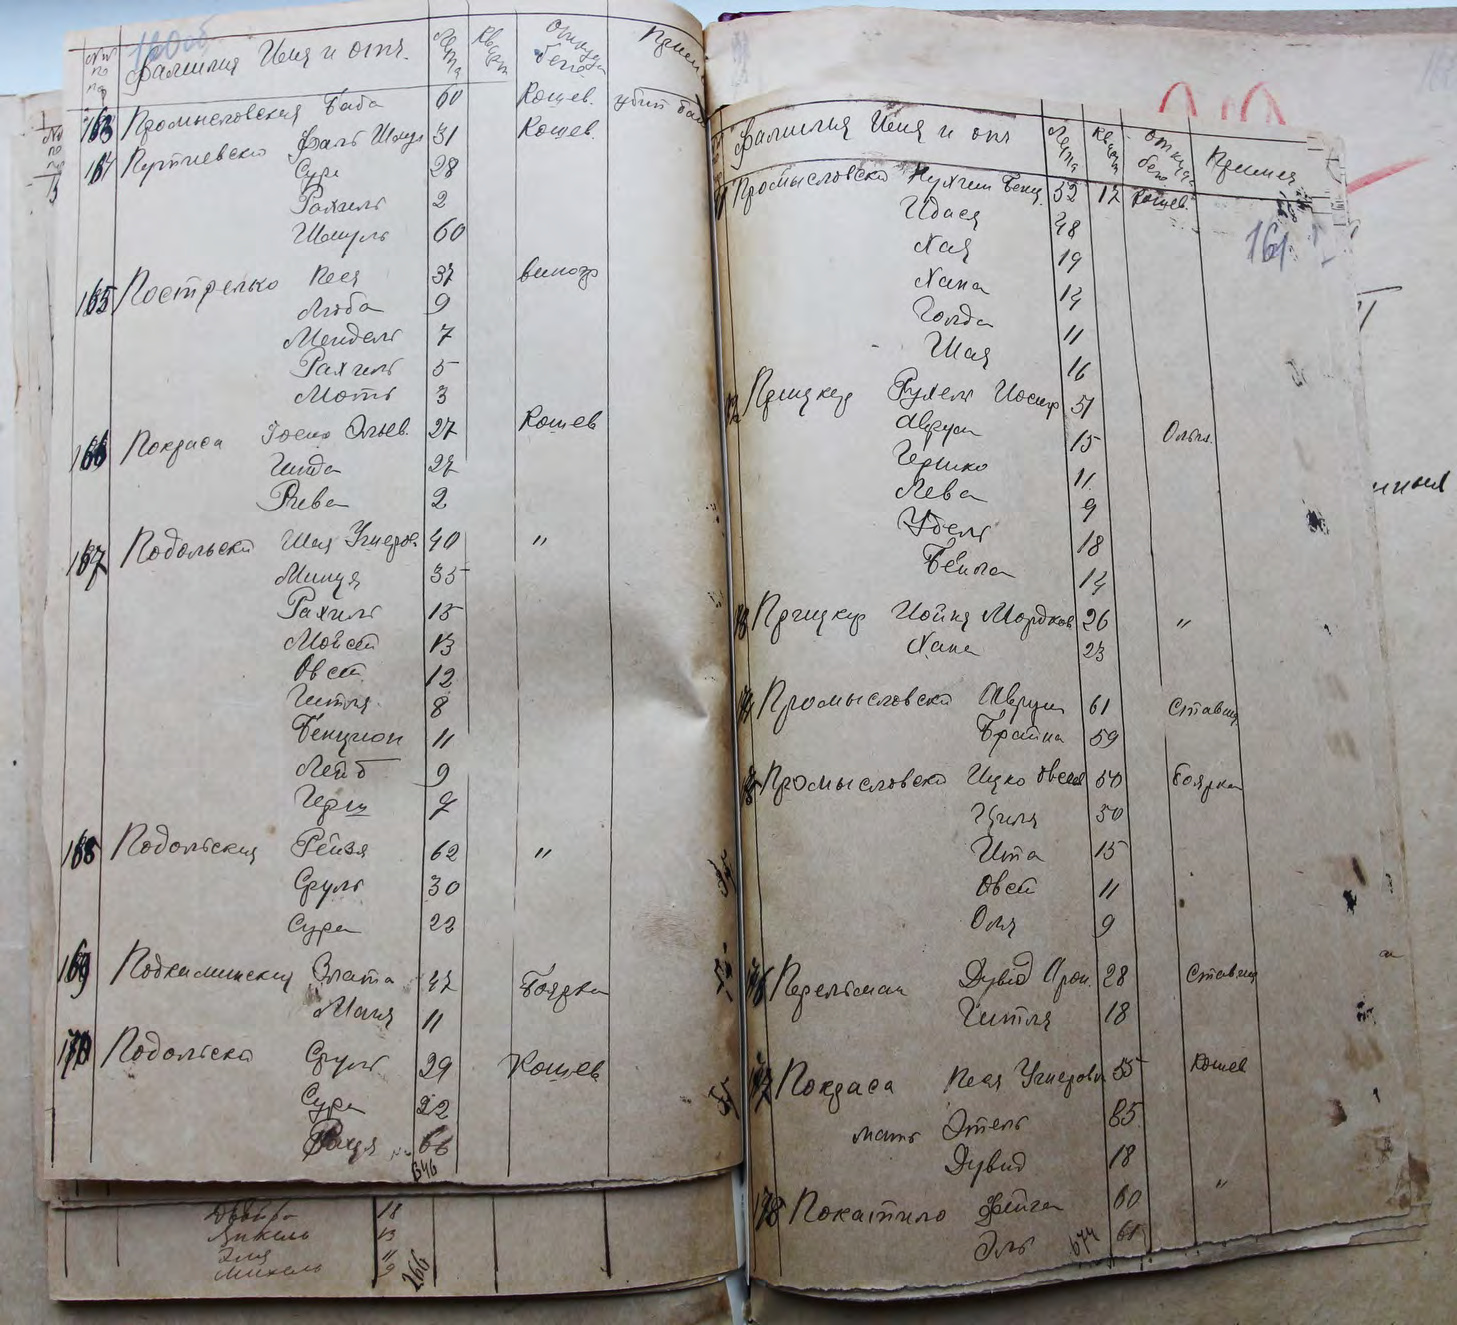 160об
№№ по пор Фамилия Имя и отч. Лета Кварт Откуда беж. Примеч
163 Промысловская Баба 60 Кошев. убит
164 Фаль Шмул 31 Кошев.
Сура 28
Рахиль 2
Шмуль 60
165 Пострелько Песя 37 виногр
Люба 9
Мендель 7
Рахиль 5
Моть 3
166 Покраса Иосио Эльев. 27 Кошев
Гитда 27
Рива 2
167 Подольски Шая Ушеров. 40 "
Минця 35
Рахиль 15
Мойсей 13
Овсей 12
Гитля 8
Бенцион 11
Лейб 9
Герш 7
168 Подольская Рейзя 62 "
Сруль 30
Сура 22
169 Подкаминская Злата 47 Боярка
Маня 11
170 Подольски Сруль 29 Кошев
Сура 22
66
346
18
Янкель 13
Эля 11
Михель 9
266
Фамилия Имя и отч Лета Кварт Откуда беж. Примеч
161
Промысловски Бенц. 52 12 Кошев.
Идася 48
Хая 19
Хана 14
Голда 11
Шая 16
Прицкер Рухель Иосиф 51
Аврум 15 Ольш.
Гершко 11
Лева 9
Удель 18
Бейла 14
Прицкер Иойна Мордков 26 "
Хана 23
Промысловски Аврум 61 Ставищ
Брайна 59
Промысловски Ицко Овсеев 50 Боярка
Циля 50
Ита 15
Овсей 11
Оля 9
Перельман Дувид Арон. 28 Ставищ
Гитля 18
Покраса Песя Ушерова 55 Кошев
мать Этель 85
Дувид 18
178 Покатило Фейга 60 "
Эль 61
674